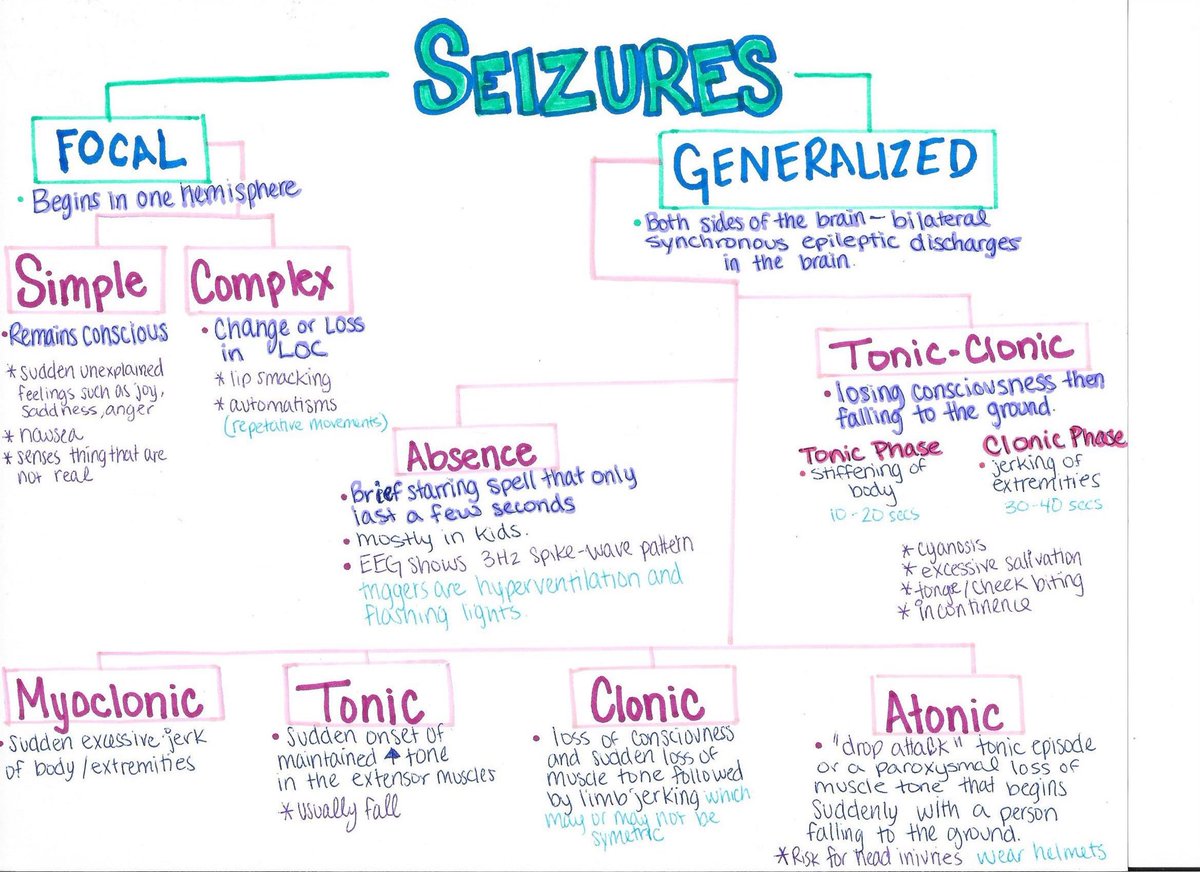 SEIZURES
FOCAL
• Begins in one hemisphere
Simple
• Remains conscious
* sudden unexplained
feelings such as joy,
saddness, anger
* nausea
* senses thing that are
not real
Complex
• Change or Loss
in LOC
* lip smacking
* automatisms
(repetative movements)
GENERALIZED
• Both sides of the brain - bilateral
synchronous epileptic discharges
in the brain.
Absence
• Brief starring spell that only
last a few seconds
• mostly in kids.
• EEG shows 3Hz spike-wave pattern
triggers are hyperventilation and
flashing lights.
Tonic-Clonic
• losing consciousness then
falling to the ground.
Tonic Phase
• stiffening of
body
10-20 secs
Clonic Phase
• jerking of
extremities
30-40 secs
* cyanosis
* excessive salivation
* tonge/cheek biting
* incontinence
Myoclonic
• sudden excessive jerk
of body/extremities
Tonic
• Sudden onset of
maintained ↑ tone
in the extensor muscles
* usually fall
Clonic
• loss of consciovness
and sudden loss of
muscle tone followed
by limb jerking which
may or may not be
symetric
Atonic
• "drop attack" tonic episode
or a paroxysmal loss of
muscle tone that begins
suddenly with a person
falling to the ground.
*Risk for head injuries wear helmets